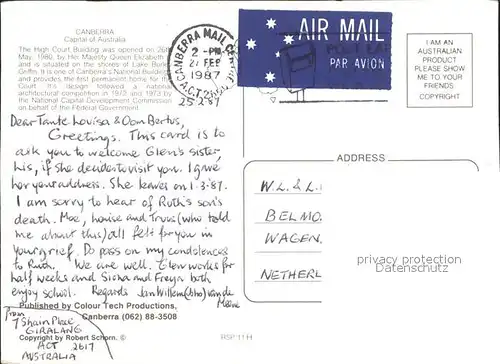 CANBERRA
Capital of Australia
The High Court Building was opened on 26th
May, 1980, by Her Majesty Queen Elizabeth
and is situated on the shores of Lake Burley
Griffin. It is one of Canberra's National Buildings
and provides the first permanent home for the
Court. It's design followed a national
architectural competition in 1972 and 1973 by
the National Capital Development Commission
on behalf of the Federal Government.
CANBERRA MAIL CENTRE
2 - PM
27 FEB
1987
A.C.T. 2600
AIR MAIL
PAR AVION
I AM AN
AUSTRALIAN
PRODUCT
PLEASE SEND
ME TO YOUR
FRIENDS
COPYRIGHT
25-2-87
Dear Tante Lovisa & Oom Bertus,
Greetings. This card is to
ask you to welcome Glen's sister,
his, if she decides to visit you. I gave
her your address. She leaves on 1-3-87.
I am sorry to hear of Ruth's son's
death. Moe, Louise and Truus (who told
me about this) all felt for you in
your grief. Do pass on my condolences
to Ruth. We are well. Glen works for
half weeks and Sian and Freyn both
enjoy school. Regards Jan Willem van de
ADDRESS
W.L. & L.
BELMO
WAGEN,
NETHERL
Published by Colour Tech Productions.
Canberra (062) 88-3508
Copyright by Robert Schorn. ©
RSP 11H
From
7 Shain Place
GIRALANG
ACT 2617
AUSTRALIA
permission of
Datenschutz